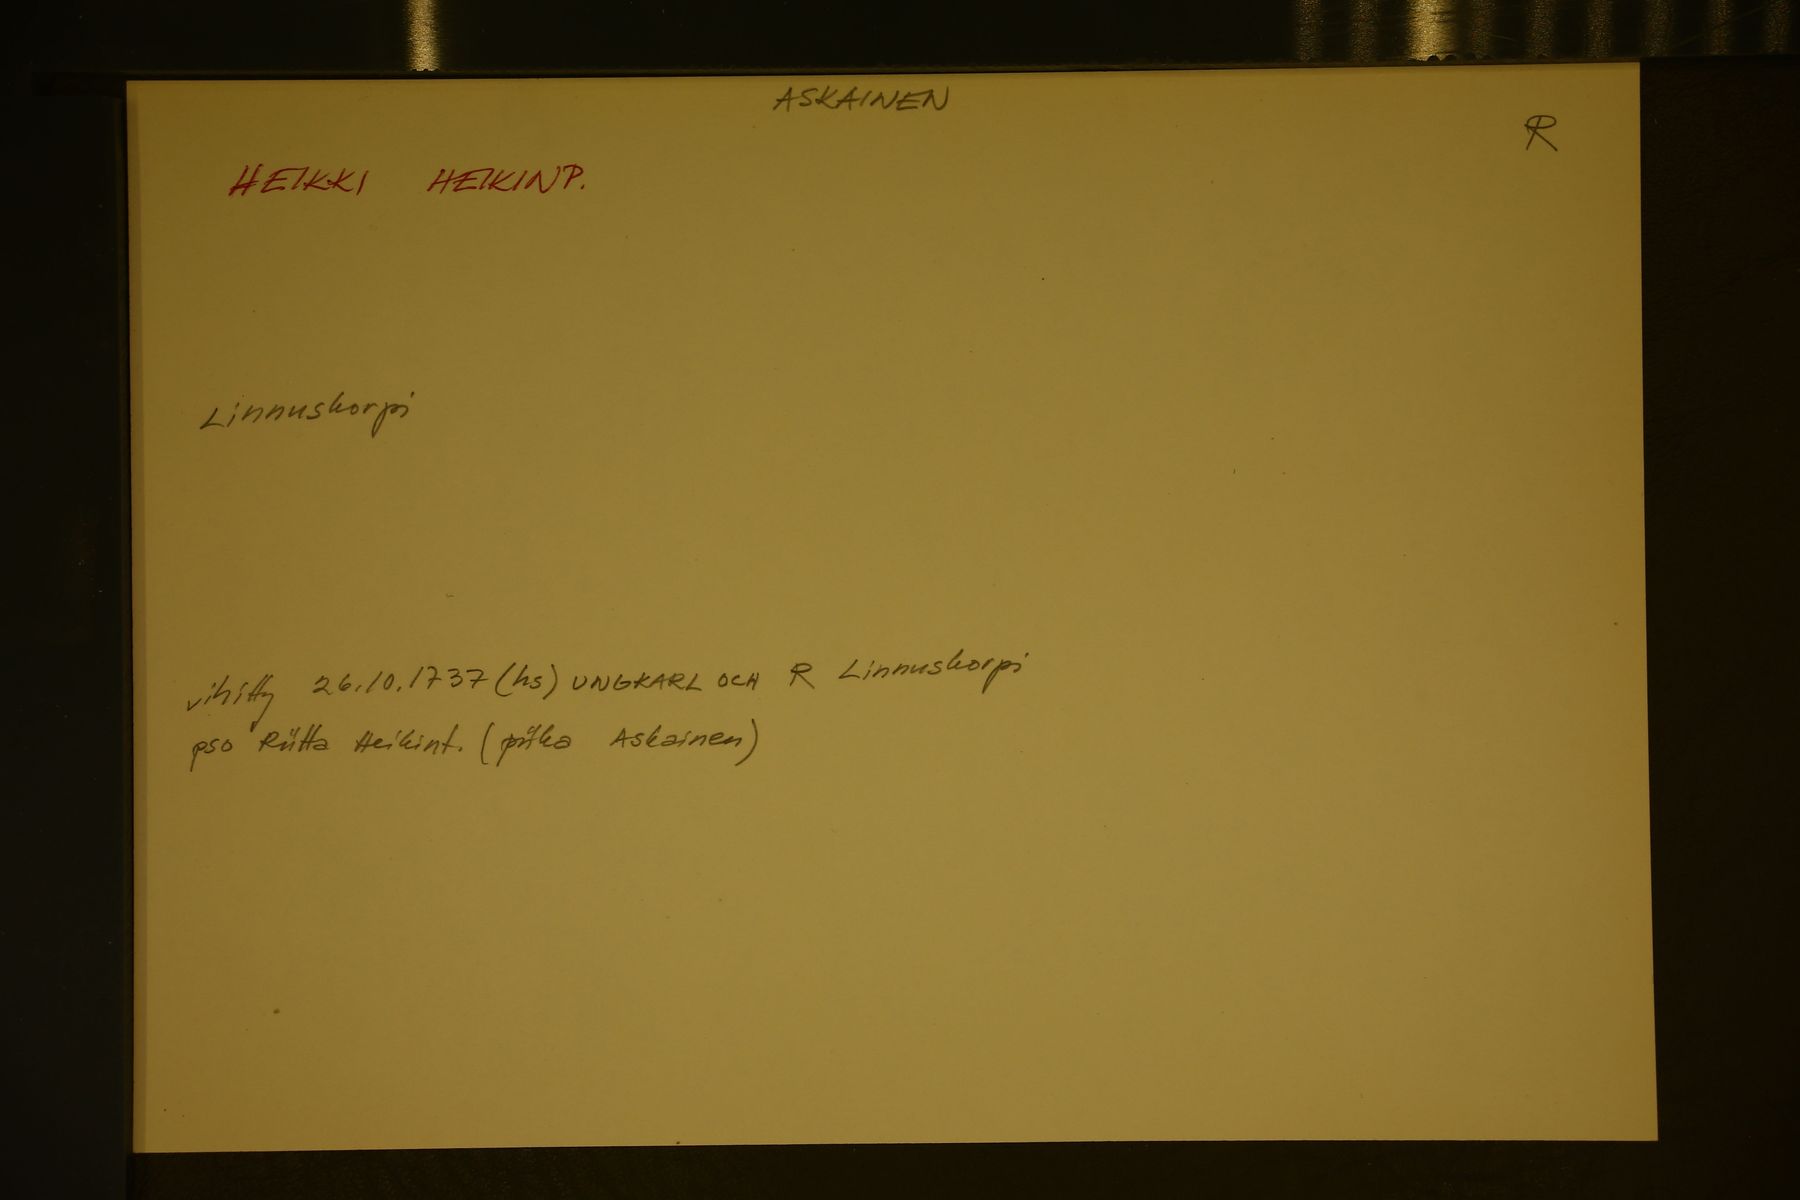 ASKAINEN
R
HEIKKI HEIKINP.
Linnuskorpi
vihitty 26.10.1737 (hs) UNGKARL OCH R Linnuskorpi
pso Riitta Heikint. (piika Askainen)